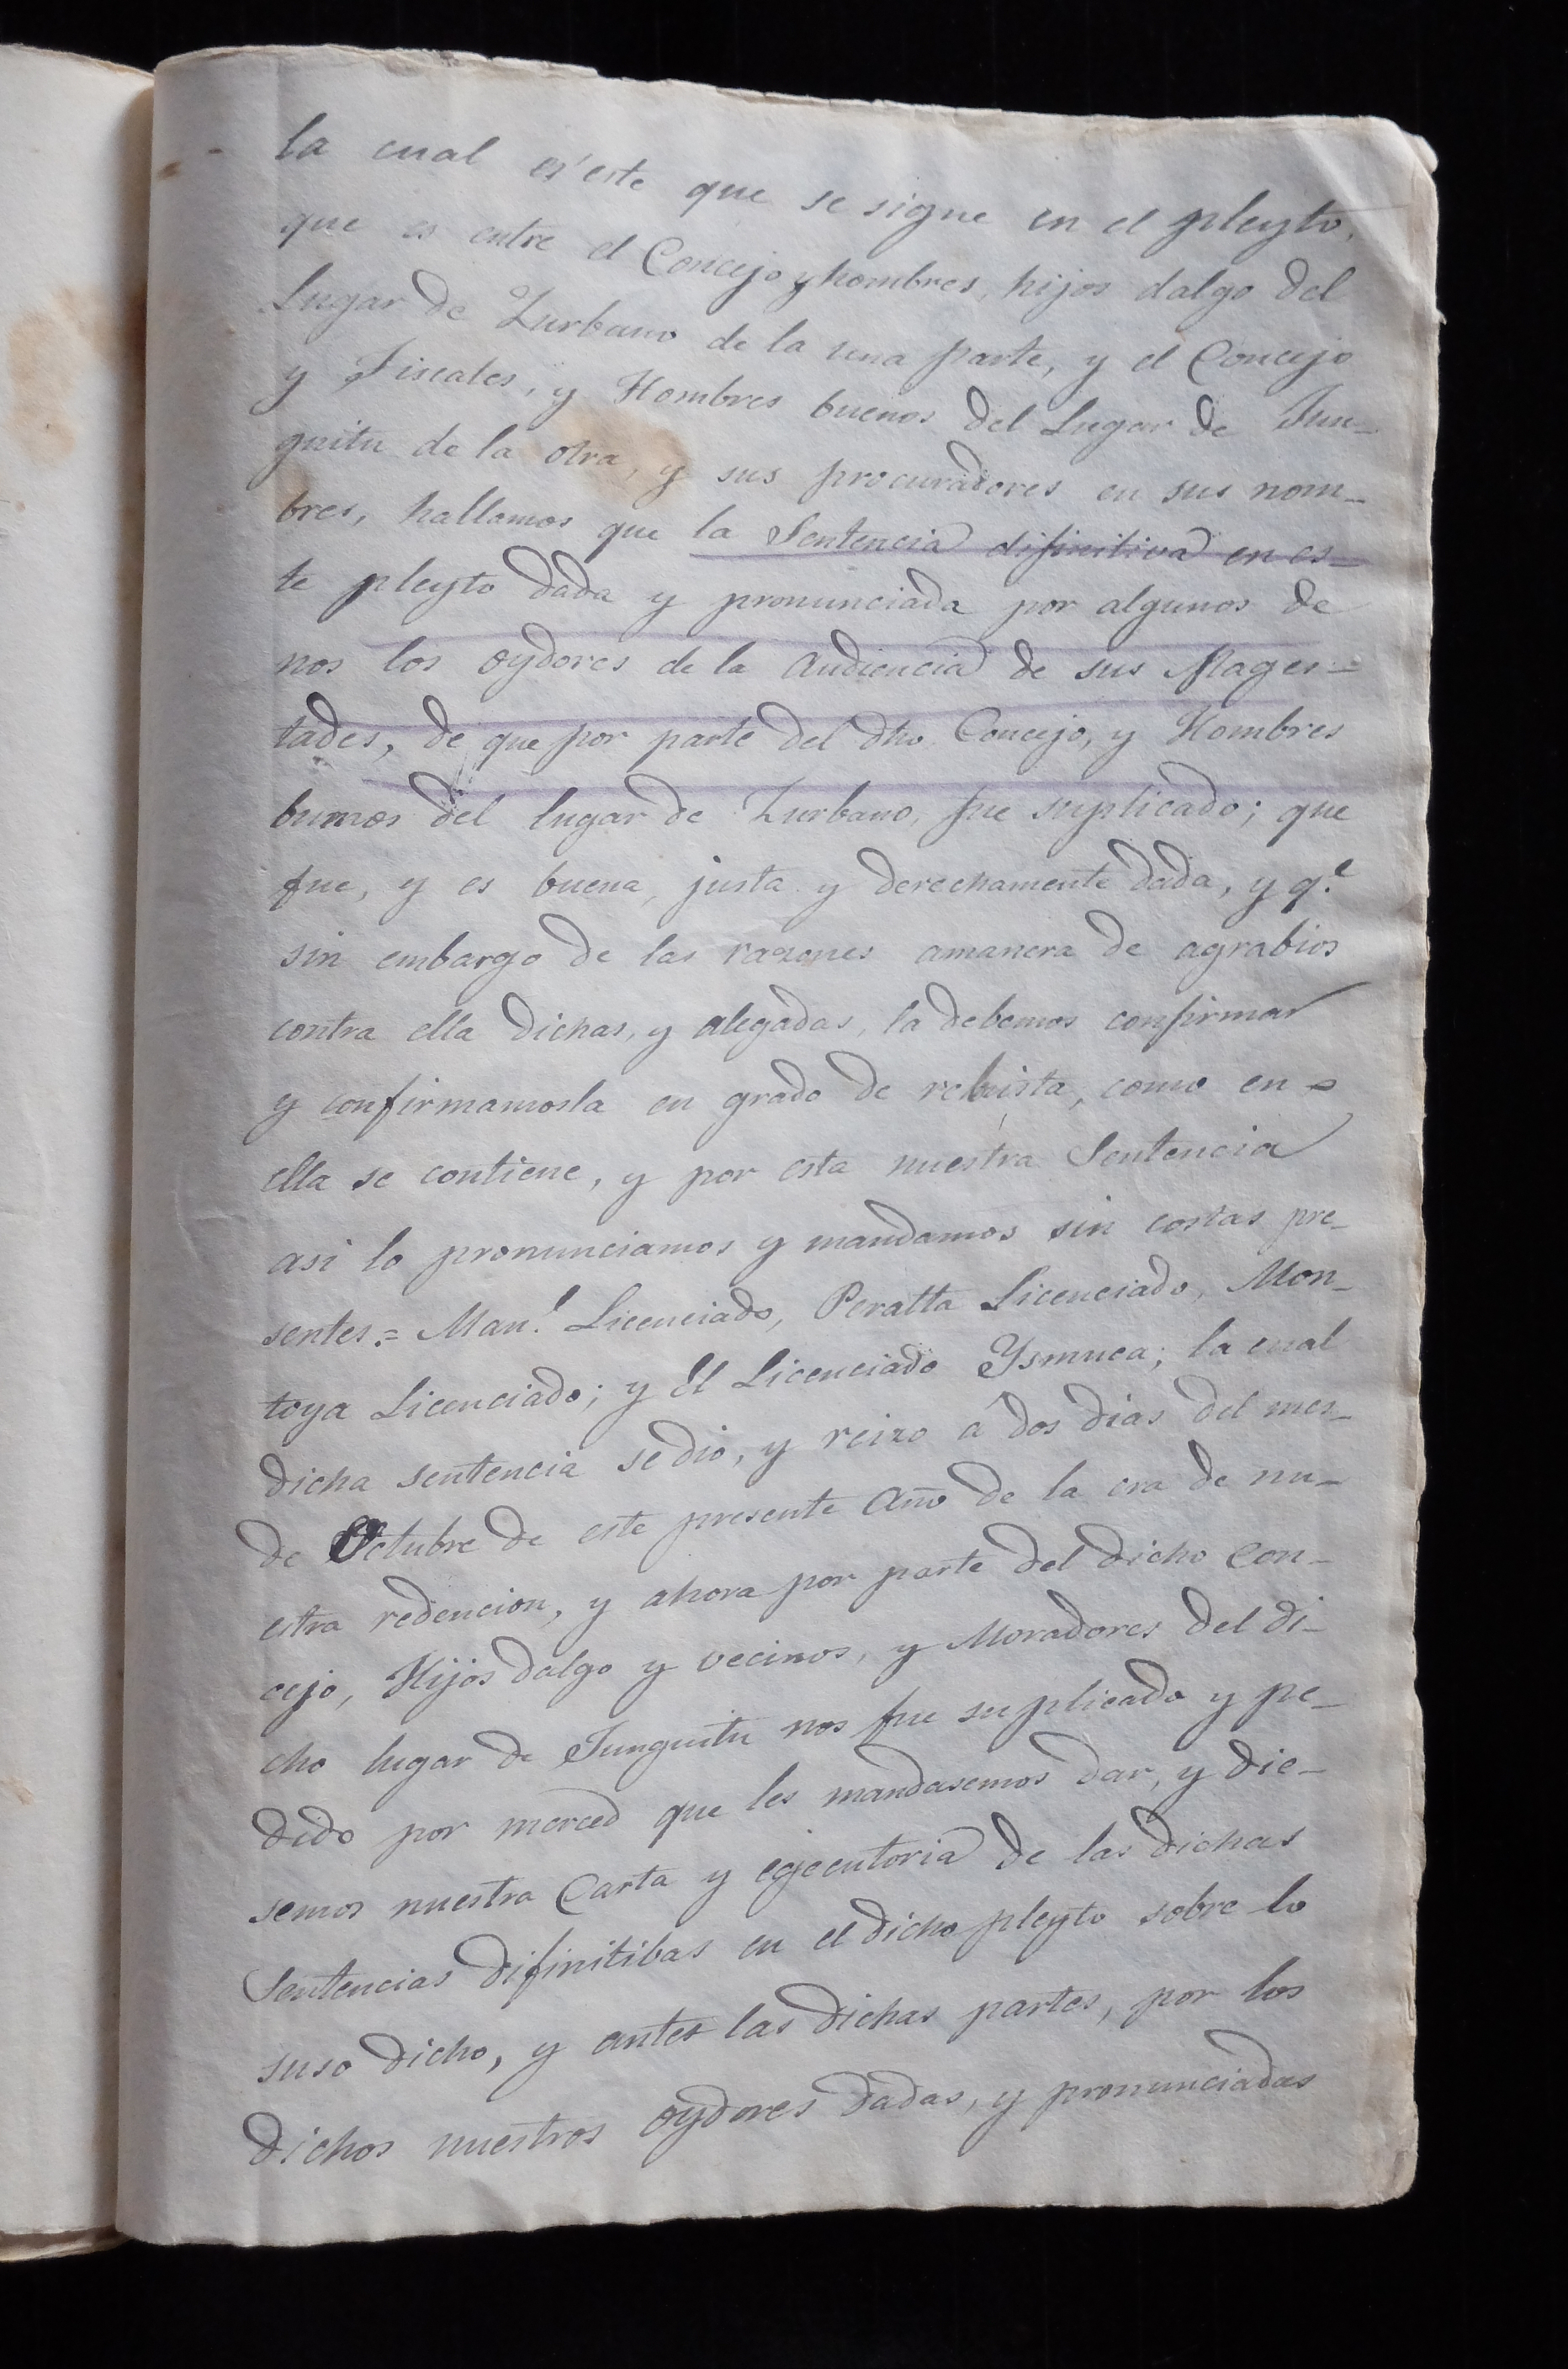 la cual es este que se sigue en el pleyto,
que es entre el Concejo y hombres, hijos dalgo del
Lugar de Zurbano de la una parte, y el Concejo
y Fiscales, y Hombres buenos del Lugar de Jun-
guitu de la otra, y sus procuradores en sus nom-
bres, hallamos que la Sentencia difinitiva en es-
te pleyto dada y pronunciada por algunos de
nos los oydores de la Audiencia de sus Mages-
tades, de que por parte del dho. Concejo, y Hombres
buenos del lugar de Zurbano, fue suplicado; que
fue, y es buena, justa y derechamente dada, y q.e
sin embargo de las razones amanera de agrabios
contra ella dichas, y alegadas, la debemos confirmar
y confirmamosla en grado de rebista, como en
ella se contiene, y por esta nuestra Sentencia
asi lo pronunciamos y mandamos sin costas pre-
sentes.= Man.l Licenciado, Peralta Licenciado, Mon-
toya Licenciado; y El Licenciado Ysmuca; la cual
dicha sentencia se dio, y reizo á dos dias del mes
de Octubre de este presente Año de la era de nu-
estra redencion, y ahora por parte del dicho Con-
cejo, Hijos dalgo y vecinos, y Moradores del di-
cho lugar de Junguitu nos fue suplicado y pe-
dido por merced que les mandasemos dar, y die-
semos nuestra Carta y egecutoria de las dichas
Sentencias difinitibas en el dicho pleyto sobre lo
suso dicho, y antes las dichas partes, por los
dichos nuestros oydores dadas, y pronunciadas